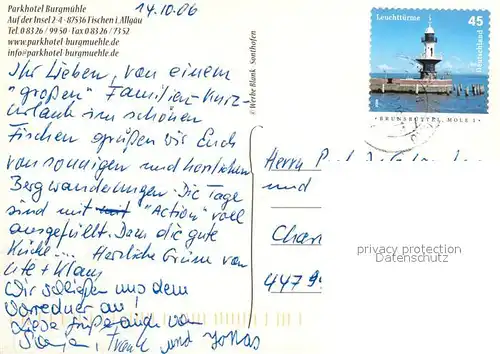 Parkhotel Burgmühle
Auf der Insel 2-4 · 87536 Fischen i. Allgäu
Tel. 0 83 26 / 99 50 · Fax 0 83 26 / 73 52
www.parkhotel-burgmuehle.de
info@parkhotel-burgmuehle.de
14.10.06
Ihr Lieben, von einem
"großen" Familien-Kurz-
urlaub im schönen
Fischen grüßen wir Euch
von sonnigen und herrlichen
Bergwanderungen. Die Tage
sind mit "Action" voll
ausgefüllt. Dann die gute
Küche.... Herzliche Grüße von
Ute + Klaus
Wir schließen uns dem
Vorredner an!
Liebe Grüße auch von
Frank und Jonas
© Werbe Blank, Sonthofen
Leuchttürme
45
Deutschland
BRUNSBÜTTEL, MOLE 1
Herrn
und
447
privacy protection
Datenschutz